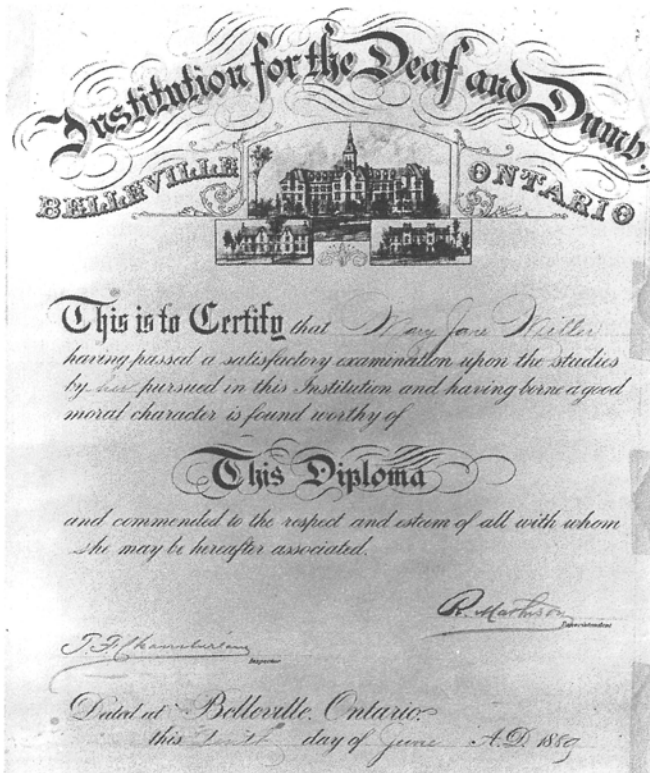 Institution for the Deaf and Dumb,
BELLEVILLE ONTARIO
This is to Certify that Mary Jane Miller
having passed a satisfactory examination upon the studies
by her pursued in this Institution and having borne a good
moral character is found worthy of
This Diploma
and commended to the respect and esteem of all with whom
she may be hereafter associated.
R. Mathison
Superintendent
T. F. Chamberlain
Inspector
Dated at Belleville, Ontario.
this tenth day of June A.D. 1889